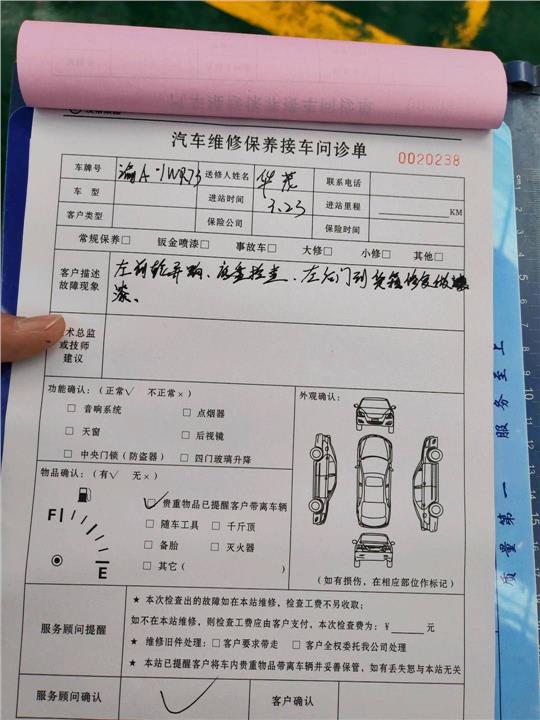 汽车维修保养接车问诊单
0020238
车牌号 渝A·1WR73 送修人姓名 联系电话
车 型 进站时间 3.23 进站里程 KM
客户类型 保险公司 保险时间
常规保养□ 钣金喷漆□ 事故车□ 大修□ 小修□ 其他□
客户描述
故障现象
左前轮异响、底盘检查、左后门到
漆、
术总监
或技师
建议
功能确认：（正常√ 不正常×）
□ 音响系统 □ 点烟器
□ 天窗 □ 后视镜
□ 中央门锁（防盗器） □ 四门玻璃升降
外观确认：
（如有损伤，在相应部位作标记）
物品确认：（有√ 无×）
F
E
✓ 贵重物品已提醒客户带离车辆
□ 随车工具 □ 千斤顶
□ 备胎 □ 灭火器
□ 其它（ ）
服务顾问提醒
★ 本次检查出的故障如在本站维修，检查工费不另收取；
如不在本站维修，则检查工费应由客户支付，本次检查费为：¥ 元
★ 维修旧件处理：□ 客户要求带走 □ 客户全权委托我公司处理
★ 本站已提醒客户将车内贵重物品带离车辆并妥善保管，如有丢失恕与本站无关
服务顾问确认 ✓ 客户确认
质量第一
服务至上